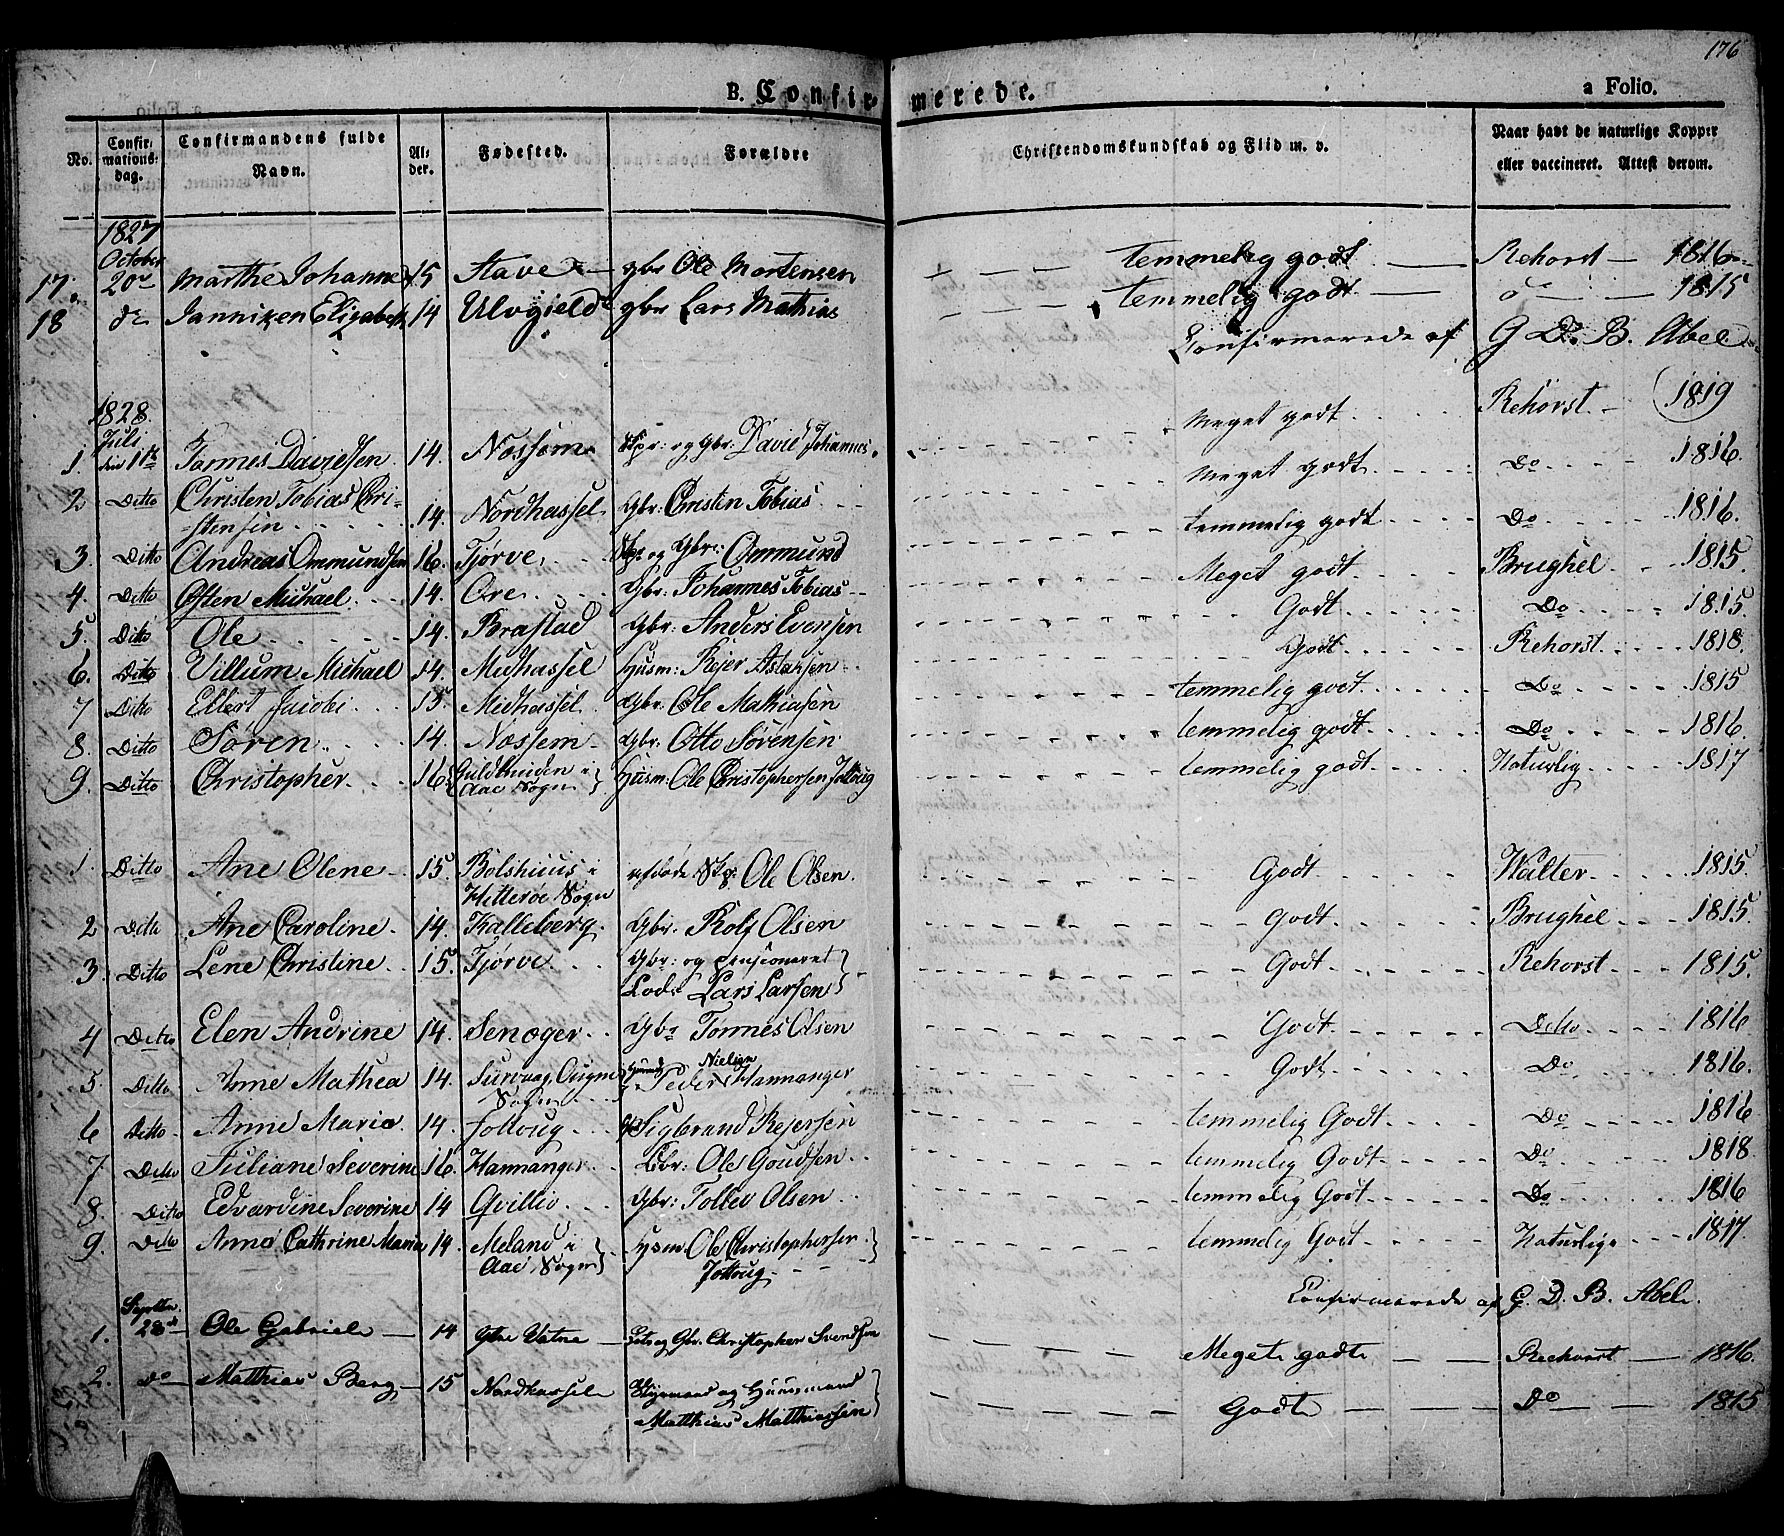 176
B. Confirmerede. a Folio.
No. Confirmationsdag. Confirmandens fulde Navn. Alder. Fødested. Forældre Christendomskundskab og Flid m. v. Naar havt de naturlige Kopper eller vaccineret. Attest derom.
1827
October
17. 20de Marthe Johanne 15 Stave gbr Ole Mortensen temmelig godt Rehorst 1816
18 do Janniken Elisabeth 14 Ulvgield gbr Lars Mathias temmelig godt do 1815
Confirmerede af G D. B. Abel
1828
Juli
1 den 1te Tørmes Davidsen 14. Nossom Skpr: og gbr: David Johannes. Meget godt Rehorst 1819
2 Ditto Christen Tobias Cri-
stensen 14. Nordhassel Gbr: Christen Tobias Meget godt Do 1816.
3. Ditto Andreas Ommundsen 16. Tjørve Skpr og Gbr: Ommund temmelig godt Do 1816.
4. Ditto Østen Michael 14. Ore Gbr: Johannes Tobias Meget godt Brughel 1815.
5. Ditto Ole 14. Brastad Gbr: Anders Evensen Godt Do 1815.
6. Ditto Villum Michael 14. Midhassel Husm: Rejer Godt Rehorst 1818.
7 Ditto Ellert Jacobi 15. Midhassel Gbr. Ole Mathiasen temmelig godt Do 1815
8. Ditto Søren 14. Nossem Gbr: Otto Sørensen temmelig godt Do 1816.
9. Ditto Christopher 16. i
Aae Sogn Husm: Ole Christophersen Jolloug temmelig godt Naturlig 1817
1. Ditto Ane Olene 15. Bolshuus i
Hitterøe Sogn afdøde Skpr Ole Olsen Godt Walter 1815.
2 Ditto Ane Caroline 14. Kalleberg Gbr: Rolf Olsen Godt Brughel 1815.
3. Ditto Lene Christine 15. Tjørve Gbr: og pensioneret
Lods Lars Larsen Godt Rehorst 1815.
4 Ditto Elen Andrine 14. Senoger Gbr Tørmes Olsen Godt Ditto 1816
5. Ditto Anne Mathea 14. Sogn Peder Nielsen Hannanger Godt Do 1816.
6 Ditto Anne Maria 14. Jolloug Gbr Sigbrand Rejersen temmelig Godt Do 1816
7 Ditto Juliane Severine 16. Hannanger Gbr: Ole Goudsen temmelig Godt Do 1818
8. Ditto Edvardine Severine 14 Qvillio Gbr: Tollev Olsen temmelig Godt Do 1816
9. Ditto Anne Cathrine Maria 14. Meland i
Aae Sogn Husm Ole Christophersen
Jolloug temmelig Godt Naturlige 1817.
Confirmerede af G. D. B. Abel.
Septbr.
1. 28de Ole Gabriel 14 Ytre Vatne Lots og Gbr. Christopher Svendsen Meget godt Rechorst 1816.
2. Do Matthias Berg 15 Nordhassel Styrmand og Huusmand
Matthias Matthiassen Godt Do 1815